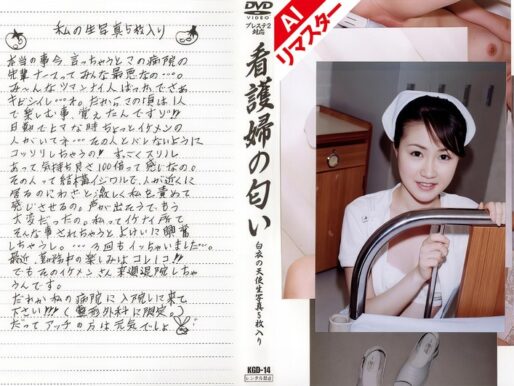 私の生写真5枚入り
本当の事今、言っちゃうとこの病院の
先輩ナースってみんな最悪なの…。
あ〜んなツマンナイ人ばっかでさぁ
で楽しむ事、覚えたんですり!!
日勤でヒマな時ちょっとイケメンの
人がいてネ…その人とバレないように
コッソリしちゃうの!! すっごくスリル
あって気持ち良さ100倍って感じなの。
その人って結構イジワルで、人が近くに
居るのにわざと激しく私を責めて
感じさせるの。声が出そうで、もう
大変だったの。私ってイケナイ所で
そんな事されちゃうとよけいに興奮
しちゃうし。…今回もイッちゃいました〜。
最近、勤務中の楽しみはコレ1コ!!
でもそのイケメンさん来週退院しちゃ
うんです。
だれか私の病院に入院しに来て
下さい!!!(整形外科に限定。)
だってアッチの方は元気でしょ
DVD
VIDEO
プレステ2
対応
看護婦の匂い
白衣の天使生写真5枚入り
KGD-14
レンタル禁止
AI
リマスター